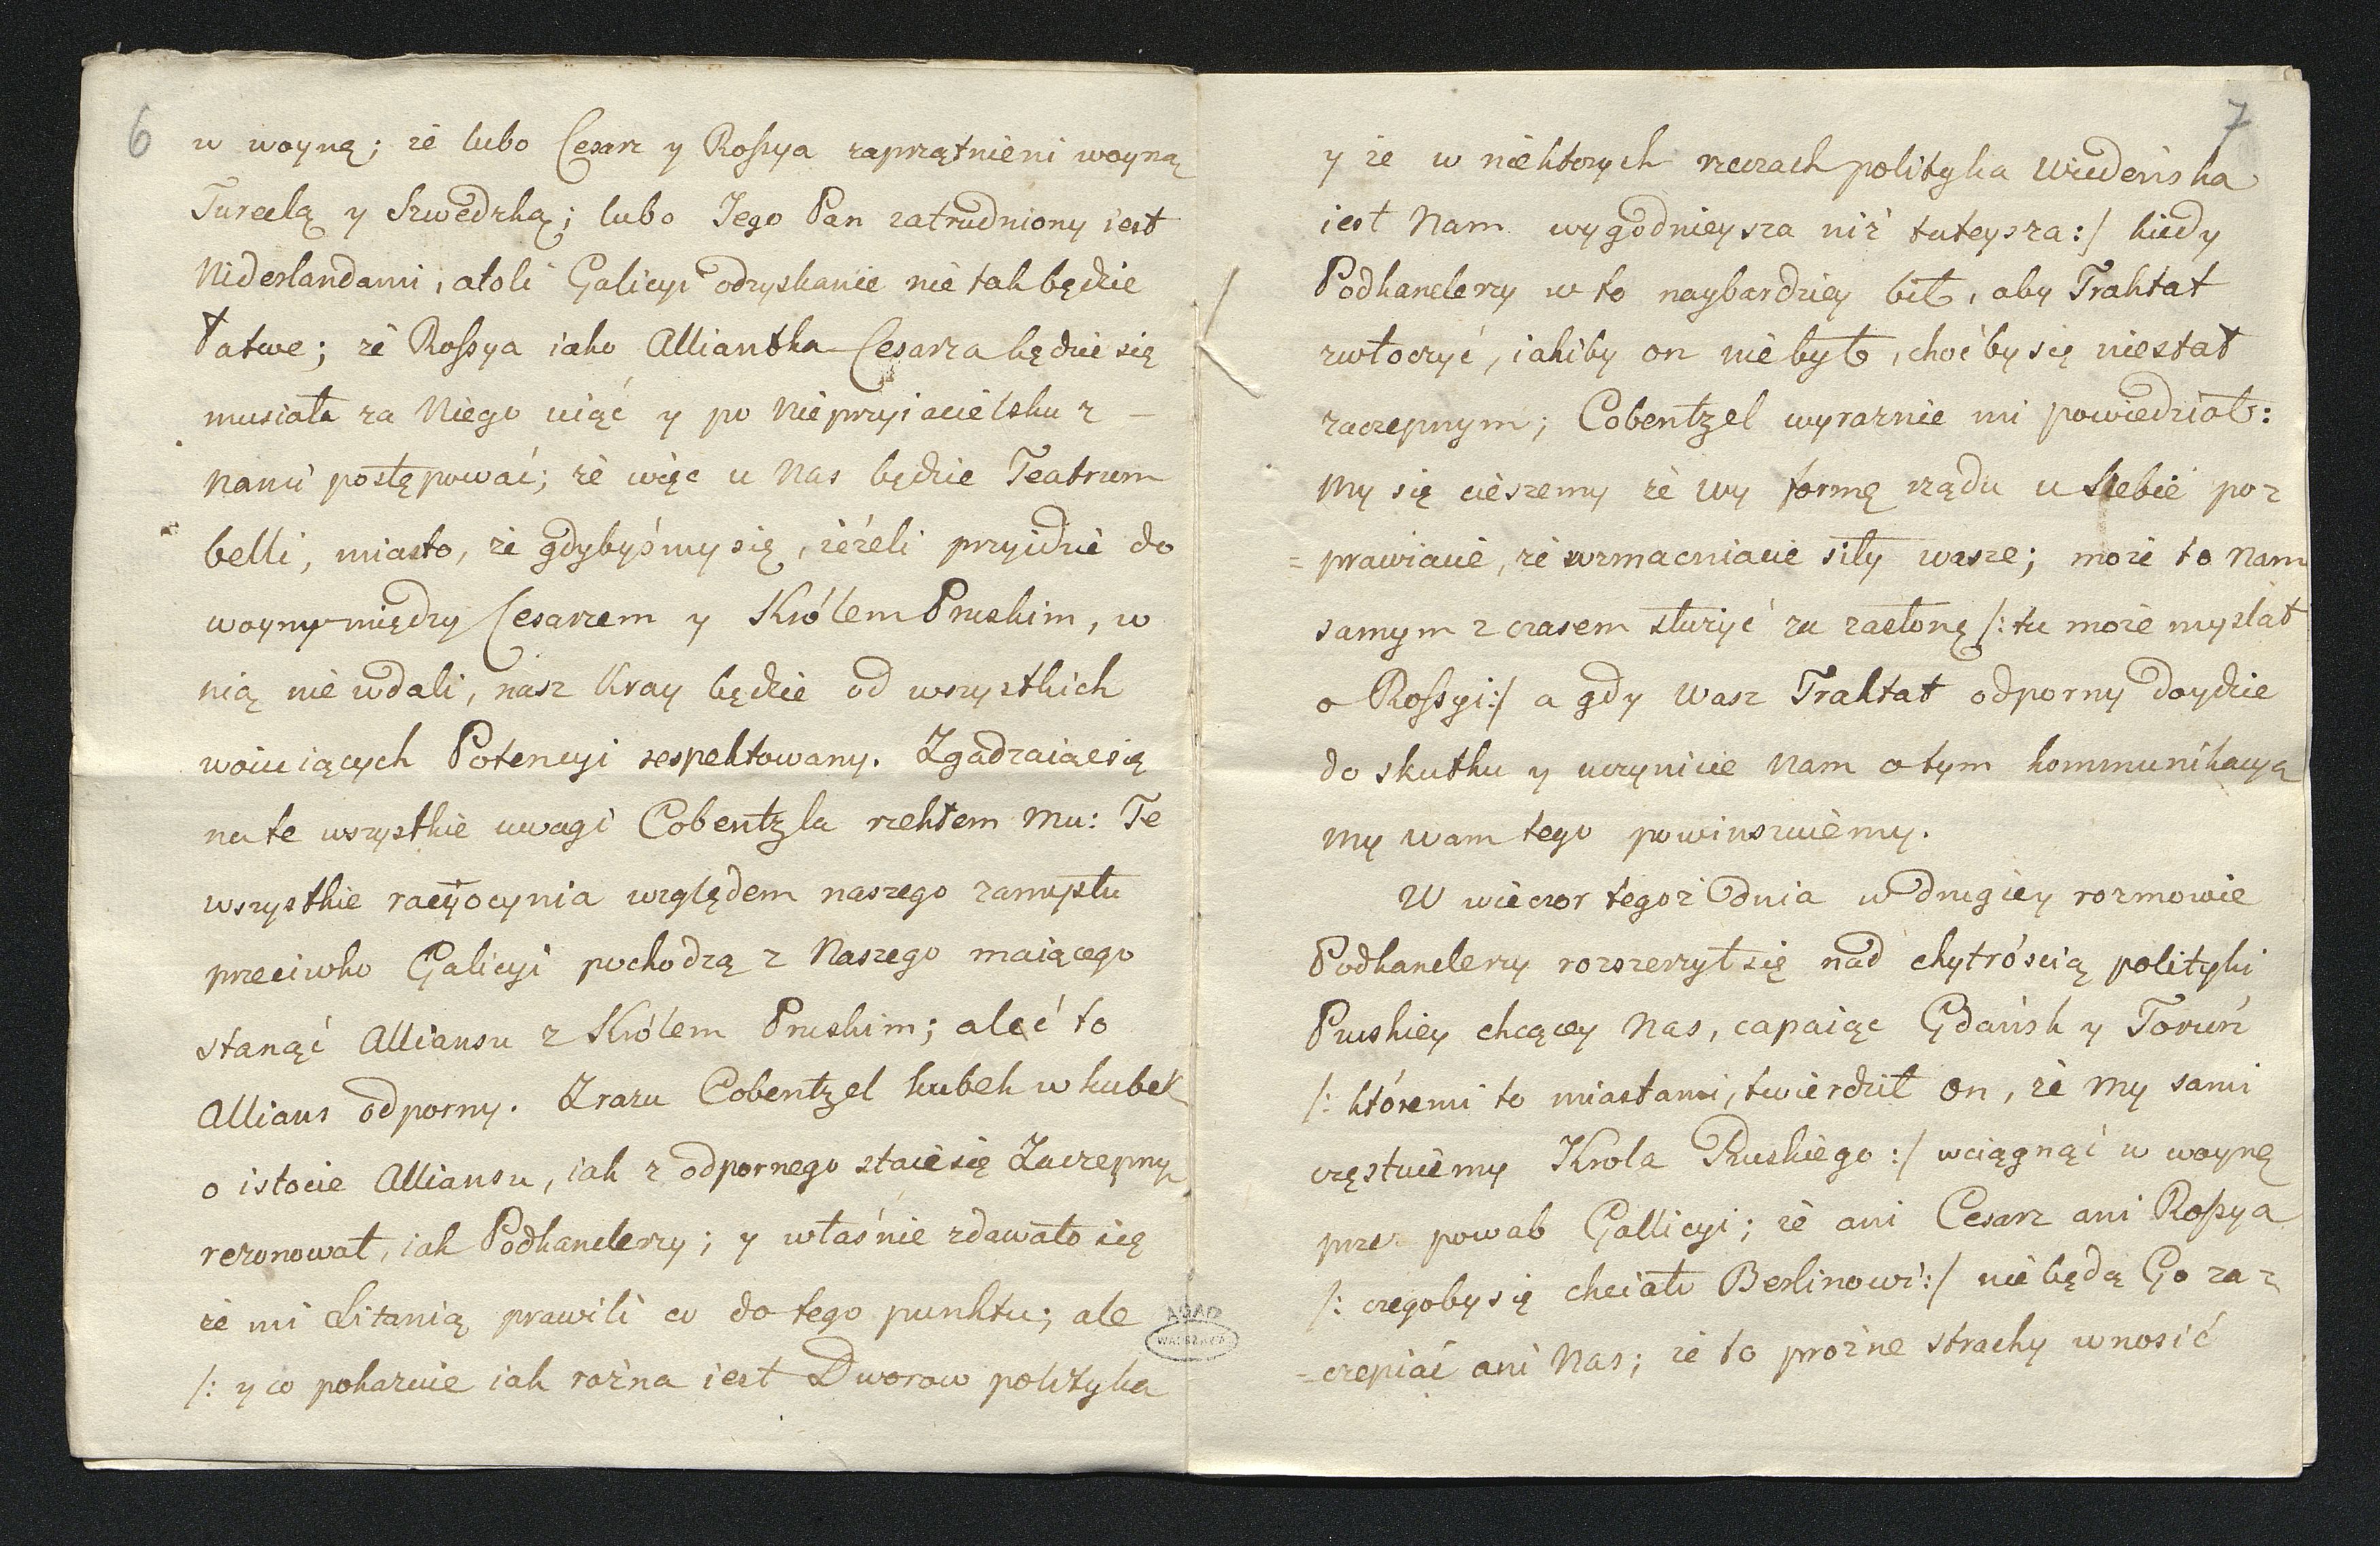 6
w woynę; że lubo Cesarz y Rossya zaprzątnieni woyną
Turecką y Szwedzką; lubo Jego Pan zatrudniony iest
Niderlandami, atoli Galicyi odzyskanie nie tak będzie
łatwe; że Rossya iako Alliantka Cesarza będzie się
musiała za Niego uiąć y po nieprzyiacielsku z
nami postępować; że więc u Nas będzie Teatrum
belli, miasto, że gdybyśmy się, ieżeli przyidzie do
woyny między Cesarzem y Królem Pruskim, w
nią nie wdali, nasz Kray będzie od wszystkich
woiuiących Potencyi respektowany. Zgadzaiąc się
na te wszystkie uwagi Cobentzla rzekłem mu: Te
wszystkie racyocynia względem naszego zamysłu
przeciwko Galicyi pochodzą z Naszego maiącego
stanąć Alliansu z Królem Pruskim; aleć to
Allians odporny. Zrazu Cobentzel kubek w kubek
o istocie Alliansu, iak z odpornego staie się Zaczepny
rezonował, iak Podkanclerzy; y właśnie zdawało się
że mi Litanią prawili co do tego punktu; ale
/: y co pokazuie iak rożna iest Dworow polityka
AGAD
WARSZAWA
7
y że w niektorych rzeczach polityka Wiedeńska
iest Nam wygodnieysza niż tuteysza:/ kiedy
Podkanclerzy w to naybardziey bił, aby Traktat
zwłoczyć, iakiby on nie był, choćby się nie stał
zaczepnym; Cobentzel wyraznie mi powiedział:
My się cieszemy że Wy formę rządu u Siebie po=
=prawiacie, że wzmacniacie siły wasze; może to Nam
samym z czasem służyć za zasłonę /: tu może myslał
o Rossyi:/ a gdy Wasz Traktat odporny doydzie
do skutku y uczynicie Nam o tym kommunikacyą
My Wam tego powinszuiemy.
W wieczor tegoż dnia w drugiey rozmowie
Podkanclerzy rozszerzył się nad chytrością polityki
Pruskiey chcącey Nas, capaiąc Gdańsk y Toruń
/: któremi to miastami, twierdził on, że my sami
częstuiemy Krola Pruskiego :/ wciągnąć w woynę
przez powab Gallicyi; że ani Cesarz ani Rossya
/: czegoby się chciało Berlinowi:/ nie będą Go za=
=czepiać ani Nas; że to prożne strachy wnosić